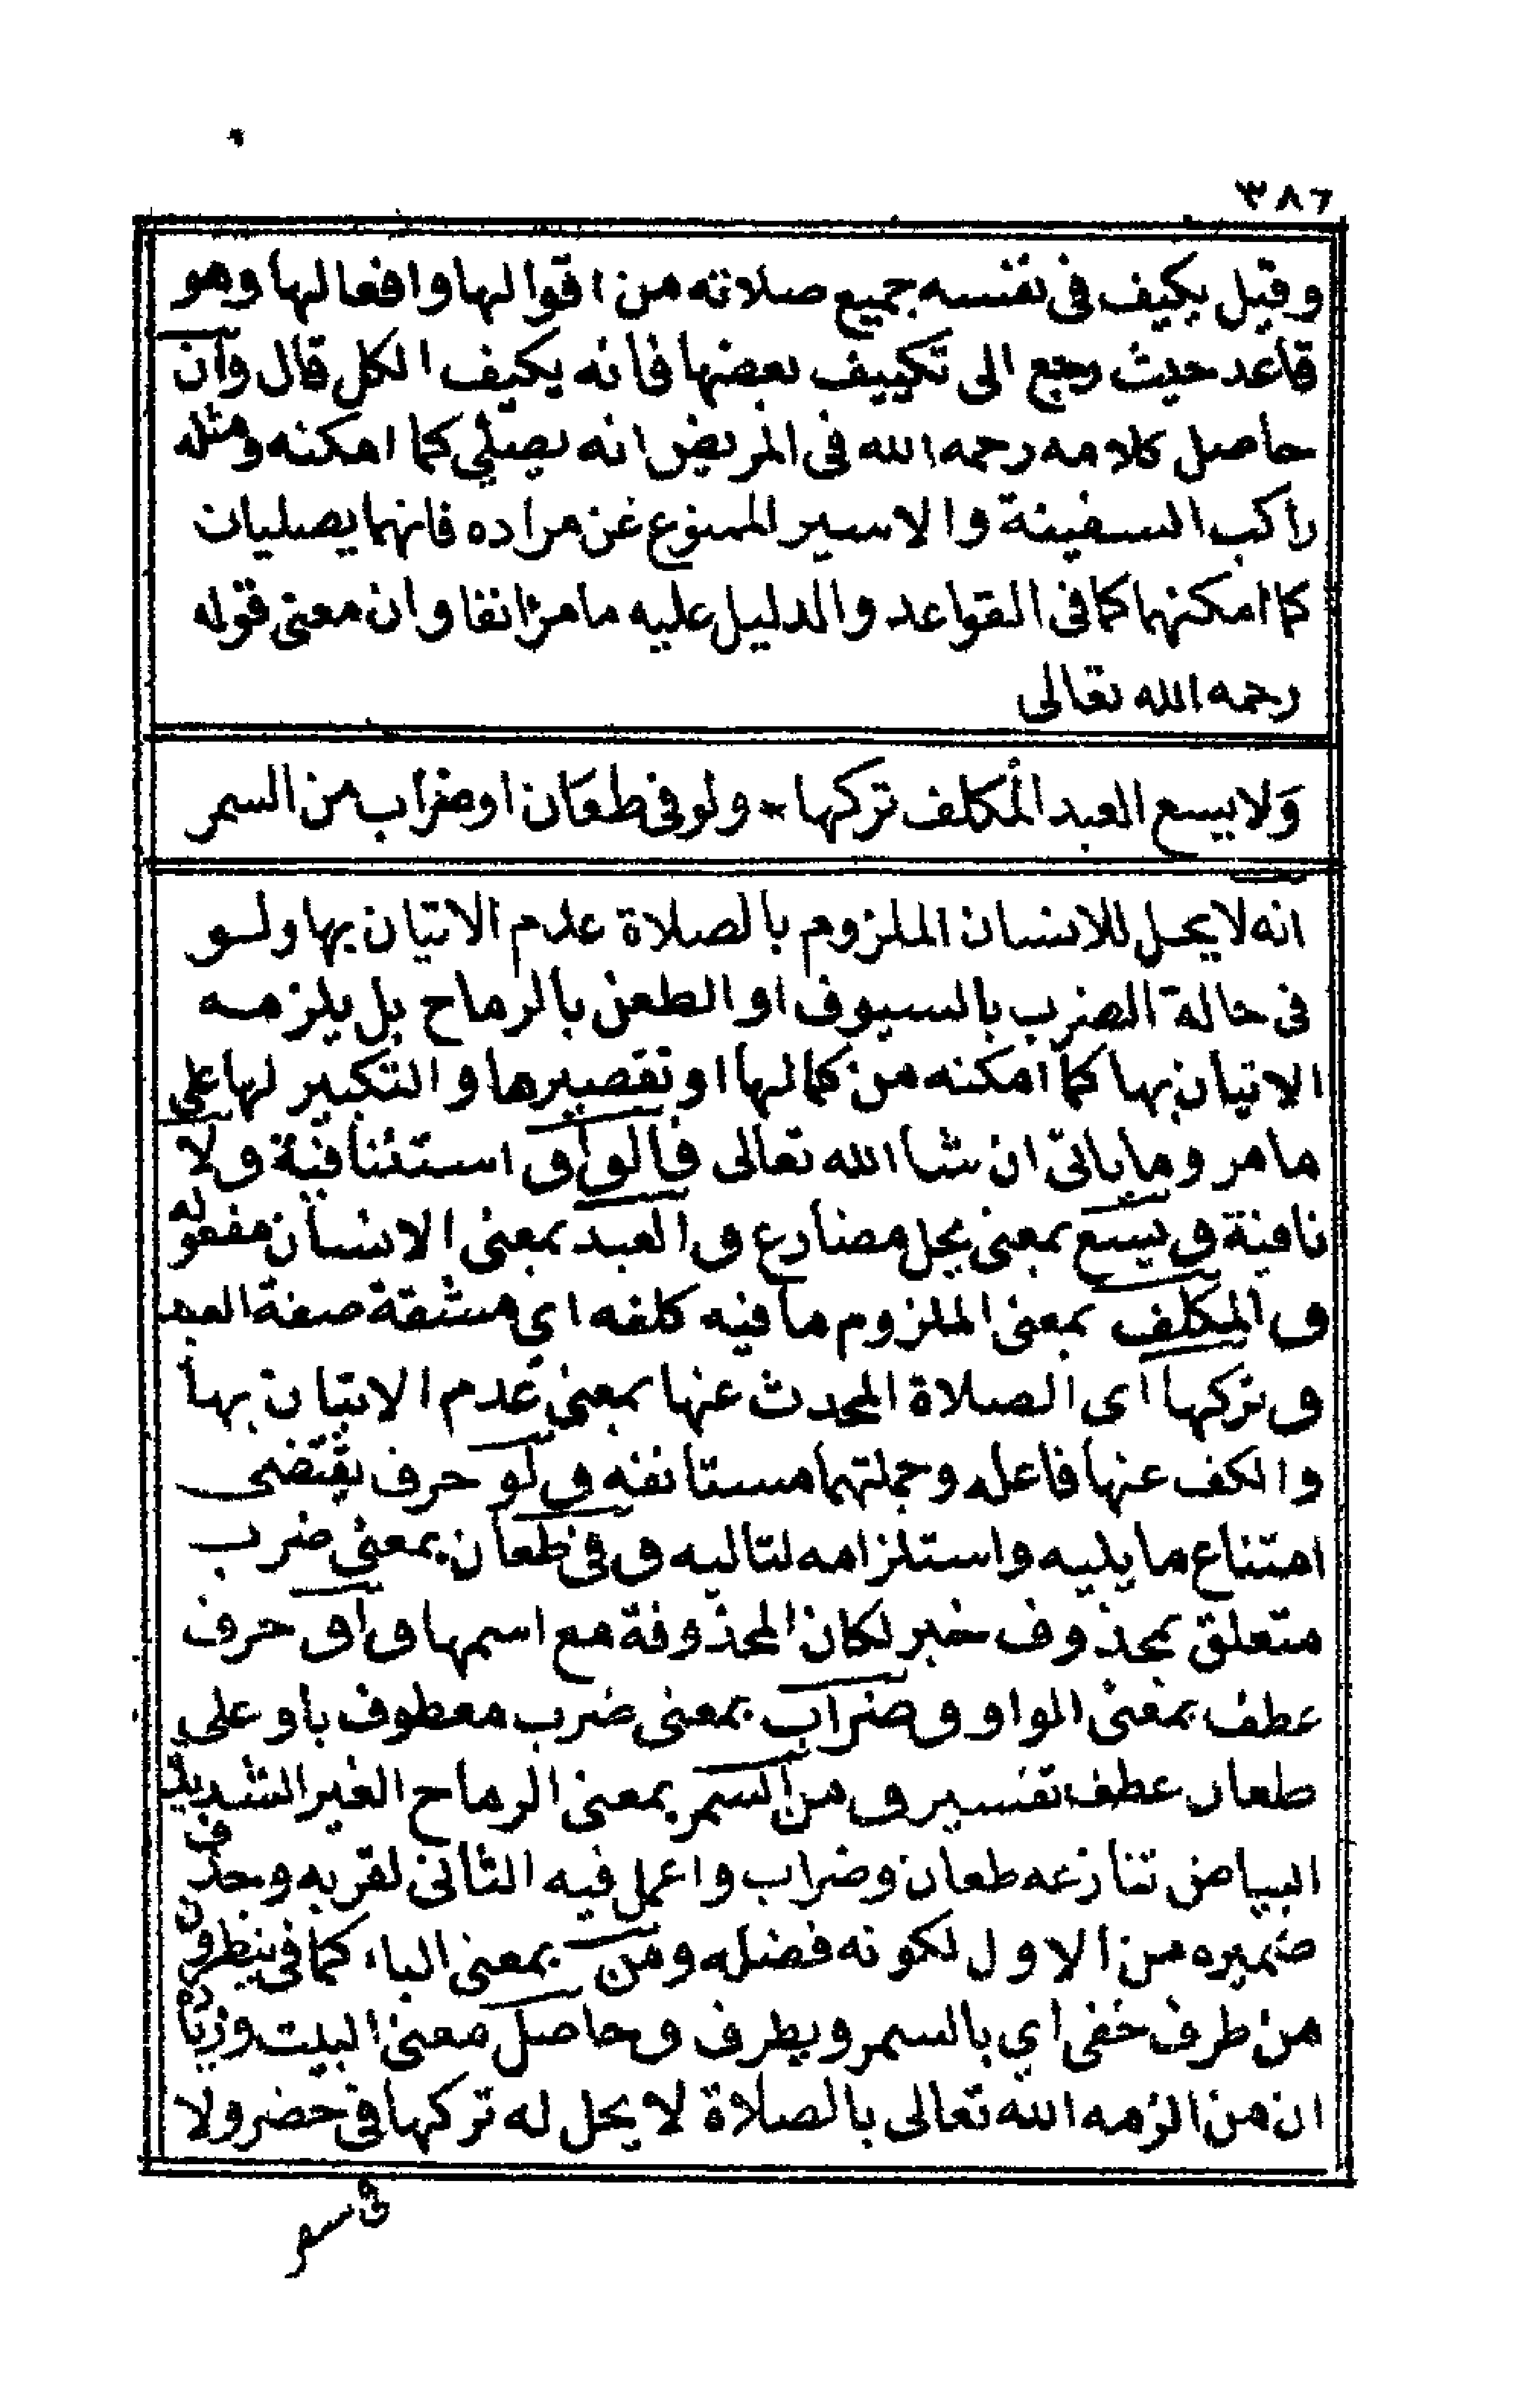 ٣٨٦
وقيل يكيف فى نفسه جميع صلاته من اقوالها وافعالها وهو
قاعد حيث رجع الى تكييف بعضها فانه يكيف الكل قال وان
حاصل كلامه رحمه الله فى المريض انه يصلي كما امكنه ومثله
راكب السفينة والاسير الممنوع عن مراده فانهما يصليان
كما امكنهما كما فى القواعد والدليل عليه ما مر انفا وان معنى قوله
رحمه الله تعالى
وَلا يسع العبد المُكلف تركها * ولو فى طعان او ضراب من السمر
انه لا يحل للانسان الملزوم بالصلاة عدم الاتيان بها ولو
فى حالة الضرب بالسيوف او الطعن بالرماح بل يلزمه
الاتيان بها كما امكنه من كمالها او تقصيرها والتكبير لها على
ما مر وما ياتى ان شا الله تعالى فالواو استئنافية ولا
نافية و يسع بمعنى يحل مضارع و العبد بمعنى الانسان مفعوله
و المكلف بمعنى الملزوم ما فيه كلفه اي مشقة صفة العبد
و تركها اى الصلاة المحدث عنها بمعنى عدم الاتيان بها
والكف عنها فاعله وجملتهما مستانفه و لو حرف يقتضى
امتناع ما يليه واستلزامه لتاليه و فى طعان بمعنى ضرب
متعلق بمحذوف خبر لكان المحذوفة مع اسمها و او حرف
عطف بمعنى الواو و ضراب بمعنى ضرب معطوف باو على
طعان عطف تفسير و من السمر بمعنى الرماح الغير الشديد
البياض تنازعه طعان وضراب واعمل فيه الثانى لقربه وحذف
ضميره من الاول لكونه فضله ومن بمعنى الباء كما فى ينظرون
من طرف خفى اي بالسمر وبطرف وحاصل معنى البيت وزياده
ان من الزمه الله تعالى بالصلاة لا يحل له تركها فى حضر ولا
فى سفر